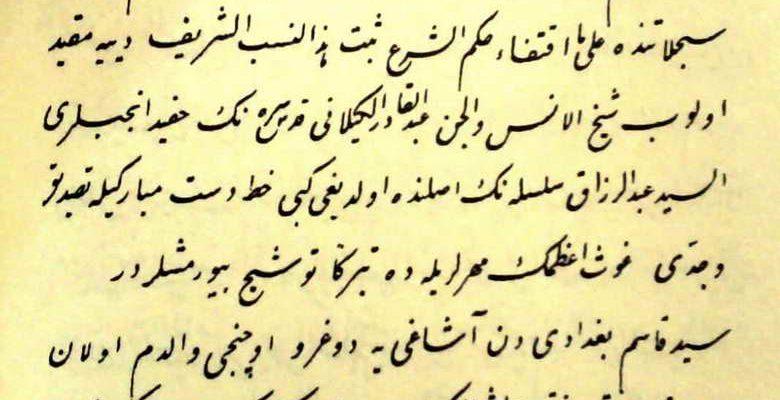 سجلاتنده على ما اقتضاء حكم الشرع ثبت هذا النسب الشريف دييه مقيد
اولوب شيخ الانس والجن عبدالقادر الكيلانى قدس سره نك حفيد انجبلرى
السيد عبدالرزاق سلسله نك اصلنده اولديغى كبى خط دست مباركيله تصديق
وجدى غوث اعظمك مهرلريله ده تبركا توشيح بيورمشلردر
سيد قاسم بغدادى دن آشاغى يه دوغرو اوچنجى والدم اولان